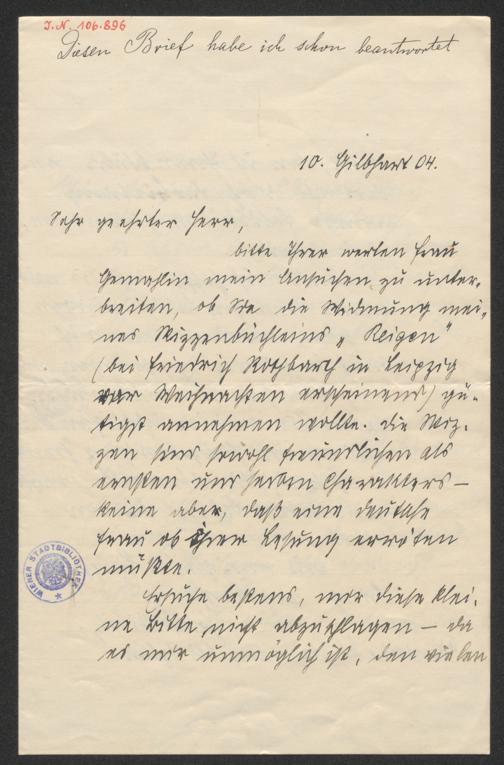 I.N. 106.896
Diesen Brief habe ich schon beantwortet
10. Gilbhart 04.
Sehr geehrter Herr,
bitte Ihrer werten Frau
Gemahlin mein Ansuchen zu unter-
breiten, ob Sie die Widmung mei-
nes Skizzenbüchleins „Reigen"
(bei Friedrich Rothbarth in Leipzig
vor Weihnachten erscheinend) gü-
tigst annehmen wollte. Die Skiz-
zen sind sowohl freundlichen als
ernsten und herben Charakters –
keine aber, daß eine deutsche
Frau ob ihrer Lesung erröten
müßte.
Ersuche bestens, mir diese klei-
ne Bitte nicht abzuschlagen – da
es mir unmöglich ist, den vielen
WIENER STADTBIBLIOTHEK